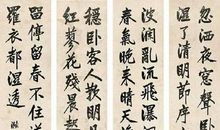 忽洒夜窓聲
濕了清明節序
澗亂流飛瀑
春氣晚来晴天
穩卧客人散明
紅蓼花殘晨
留停留春不住
羅衣都濕透